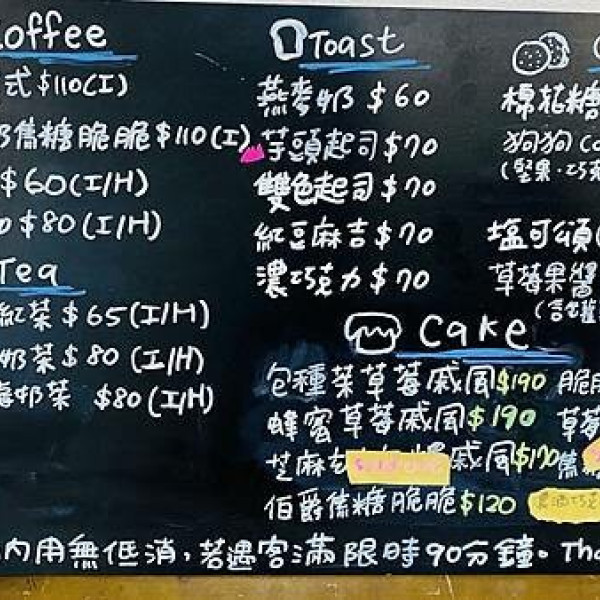 offee
式$110(I)
焦糖脆脆$110(I)
$60(I/H)
$80(I/H)
Tea
紅茶$65(I/H)
奶茶$80(I/H)
奶茶 $80(I/H)
Toast
燕麥奶 $60
芋頭起司$70
雙色起司$70
紅豆麻吉$70
濃巧克力$70
棉花糖
狗狗co
(堅果·巧克
塩可頌(
草莓果醬
Cake
包種茶草莓戚風$190 脆脆
蜂蜜草莓戚風$190 草莓
芝麻 戚風$170 焦糖
伯爵焦糖脆脆$120
內用無低消,若遇客滿限時90分鐘。Tha